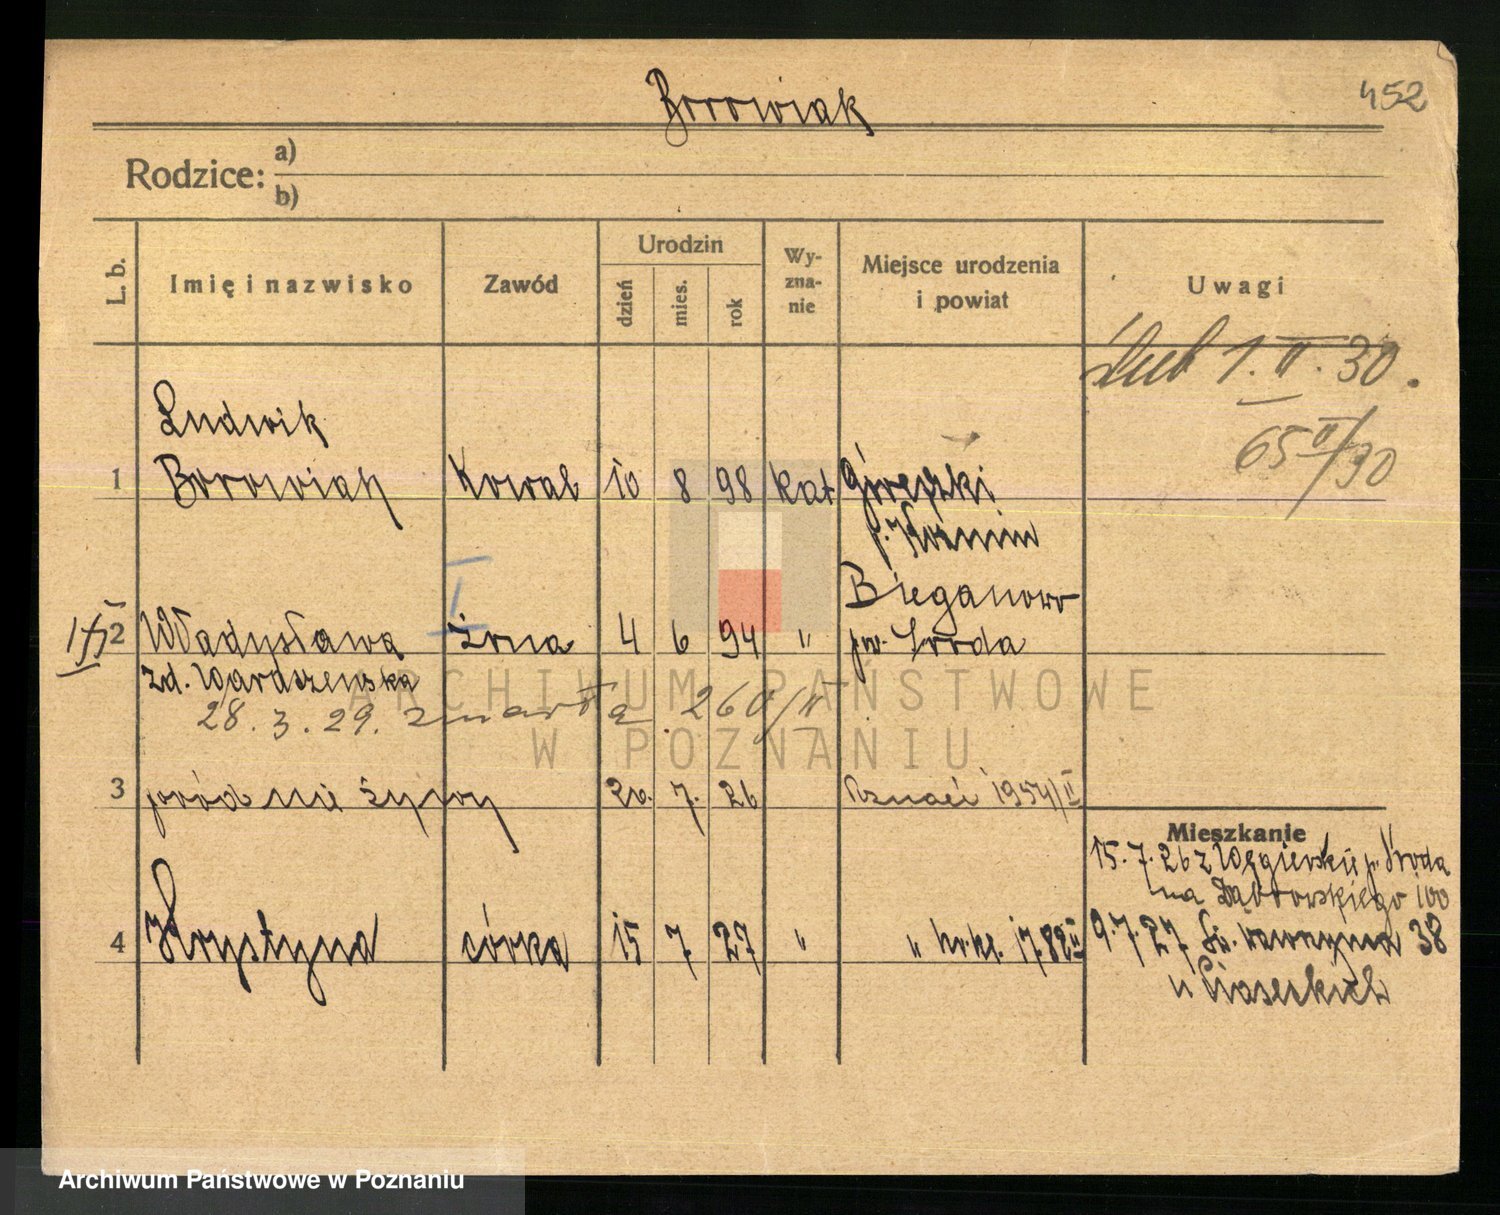 Borowiak
452
Rodzice: a)
b)
L. b.
Imię i nazwisko
Zawód
Urodzin
dzień
mies.
rok
Wy-
zna-
nie
Miejsce urodzenia
i powiat
Uwagi
ślub 1. II. 30.
65 II/30
Ludwik
1 Borowiak Kowal 10 8 98 kat
p. Koźmin
I
Bieganowo
2 Władysława żona 4 6 94 " pw. Środa
zd. Wardszenska
28. 3. 29. zmarła 260/II
3 poród nie żywy 20. 7. 26 Poznań 1954/II
Mieszkanie
15. 7. 26 z Węgierskie p. Środa
na Dąbrowskiego 100
4 Krystyna córka 15 7 27 " " 1782 II
9. 7. 27 Św. Wawrzyńca 38
u Piaseckich
ARCHIWUM PAŃSTWOWE
W POZNANIU
Archiwum Państwowe w Poznaniu